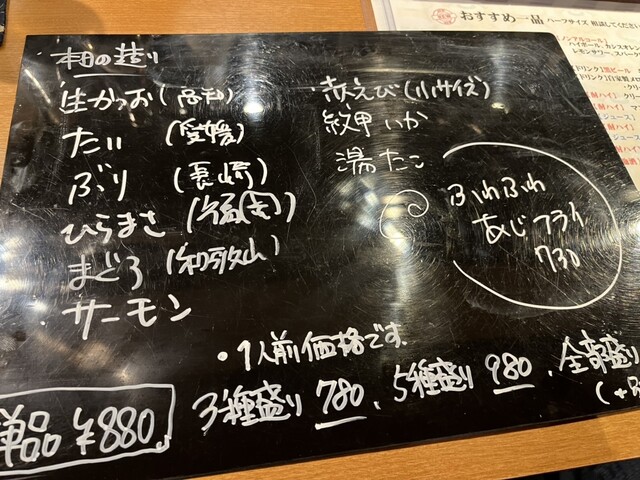 本日の造り
生かつお(高知)
たい(愛媛)
ぶり(長崎)
ひらまさ
まぐろ(和歌山)
・サーモン
赤えび(小サイズ)
紋甲いか
湯たこ
ふわふわ
あじフライ
730
・1人前価格です
3種盛り 780、5種盛り 980、全部盛り
単品 ¥880
おすすめ一品 ハーフサイズ 相談してください
ノンアルコール
ハイボール、カシスオレン
レモンサワー、スパーク